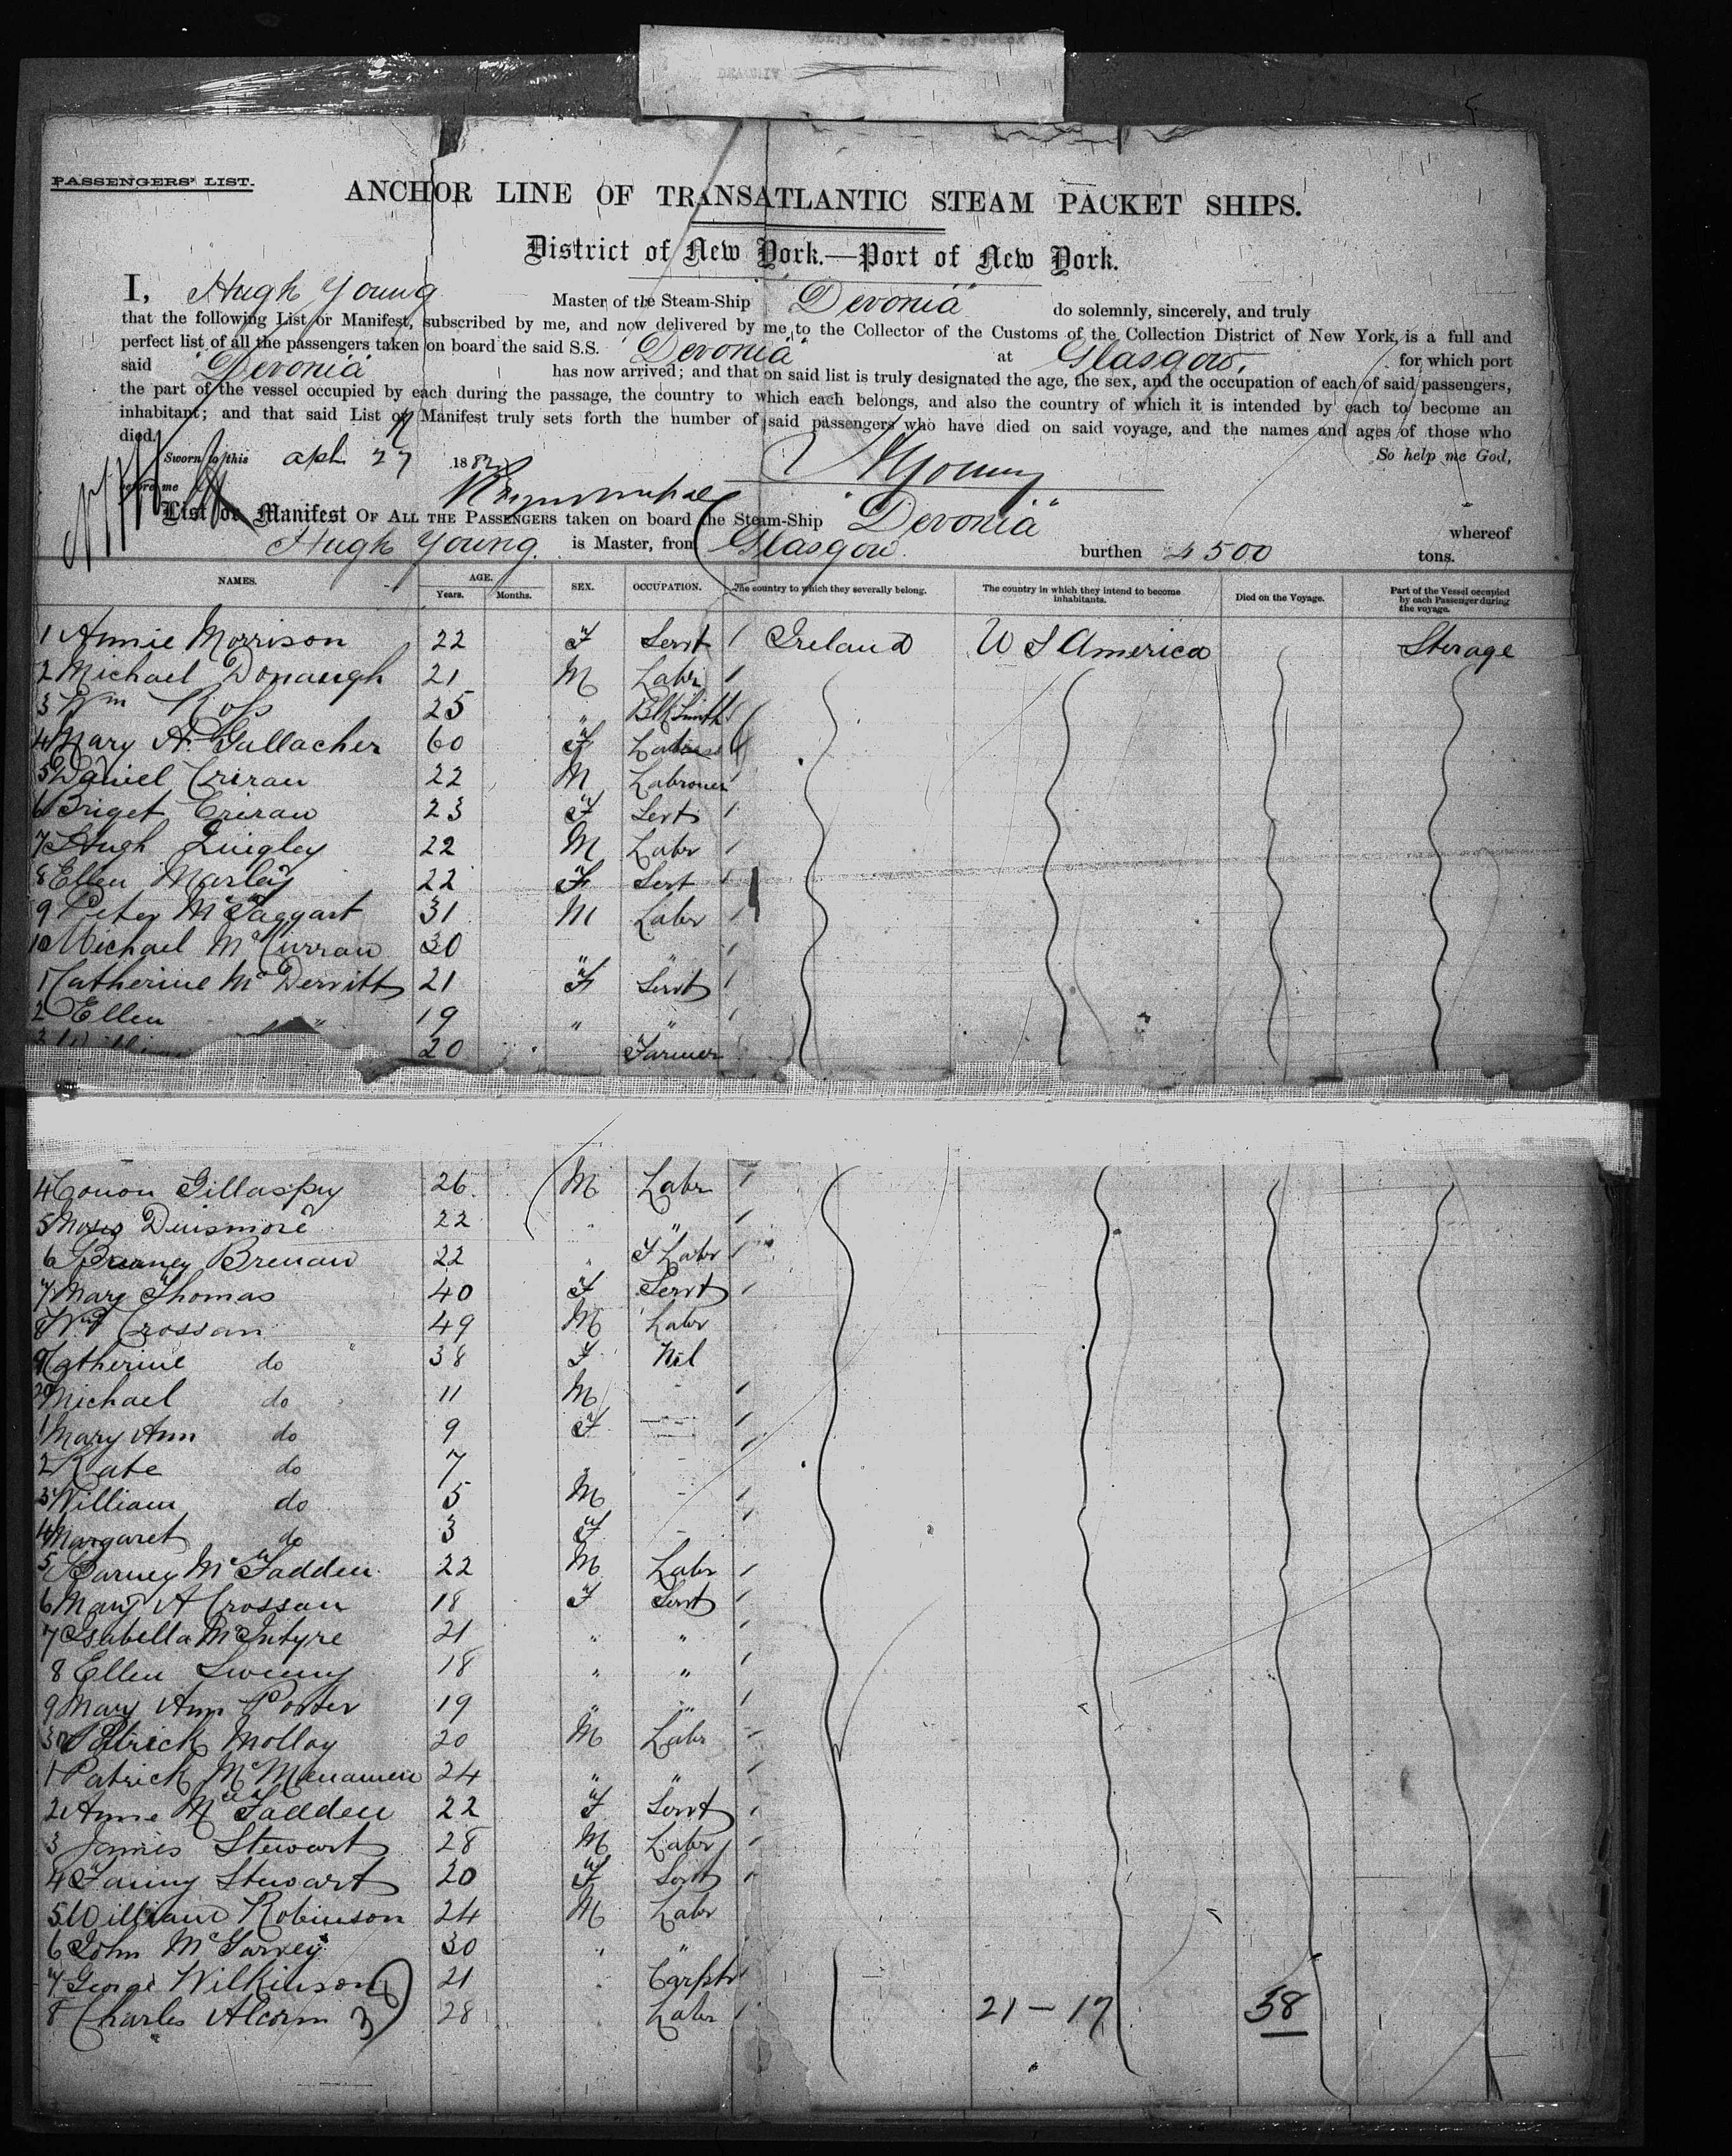 PASSENGERS' LIST.
ANCHOR LINE OF TRANSATLANTIC STEAM PACKET SHIPS.
District of New York.—Port of New York.
I, Hugh Young Master of the Steam-Ship "Devonia" do solemnly, sincerely, and truly
that the following List or Manifest, subscribed by me, and now delivered by me to the Collector of the Customs of the Collection District of New York, is a full and
perfect list of all the passengers taken on board the said S.S. "Devonia" at Glasgow, for which port
said "Devonia" has now arrived; and that on said list is truly designated the age, the sex, and the occupation of each of said passengers,
the part of the vessel occupied by each during the passage, the country to which each belongs, and also the country of which it is intended by each to become an
inhabitant; and that said List or Manifest truly sets forth the number of said passengers who have died on said voyage, and the names and ages of those who
died.
So help me God,
Sworn to this apl 27 1882
HYoung
before me
List or Manifest OF ALL THE PASSENGERS taken on board the Steam-Ship "Devonia" whereof
Hugh Young. is Master, from Glasgow. burthen 4500 tons.
NAMES. AGE. SEX. OCCUPATION. The country to which they severally belong. The country in which they intend to become inhabitants. Died on the Voyage. Part of the Vessel occupied by each Passenger during the voyage.
Years. Months.
1 Annie Morrison 22 F Servt Ireland U S America Sterage
2 Michael Donaugh 21 M Labr
3 Wm Ross 25 " Blksmith
4 Mary A. Gallacher 60 F
5 Daniel Creran 22 M
6 Briget Creran 23 F Servt
7 Hugh Quigley 22 M Labr
8 Ellen Marley 22 F Servt
9 Peter McTaggart 31 M Labr
10 Michael McCurran 30 " "
1 Catherine McDervitt 21 F Servt
2 Ellen " 19 " "
3 20 Farmer
4 Conon Gillaspey 26 M Labr
5 Moses Dinsmore 22 " "
6 Brenan 22 " F Labr
7 Mary Thomas 40 F Servt
8 Wm Crossan 49 M Labr
9 Catherine do 38 F Nil
20 Michael do 11 M -
1 Mary Ann do 9 F -
2 Kate do 7 " -
3 William do 5 M -
4 Margaret do 3 F -
5 Barney McFadden 22 M Labr
6 Mary A Crossan 18 F Servt
7 Isabella McIntyre 21 " "
8 Ellen Sweeny 18 " "
9 Mary Ann Porter 19 " "
30 Patrick Molloy 20 M Labr
1 Patrick McMenamen 24 " "
2 Annie McFadden 22 F Servt
3 James Stewart 28 M Labr
4 Fanny Stewart 20 F Servt
5 William Robinson 24 M Labr
6 John McGarvey 30 " "
7 George Wilkinson 21 " Carptr
8 Charles Alcorn 28 " Labr 21 - 17 38